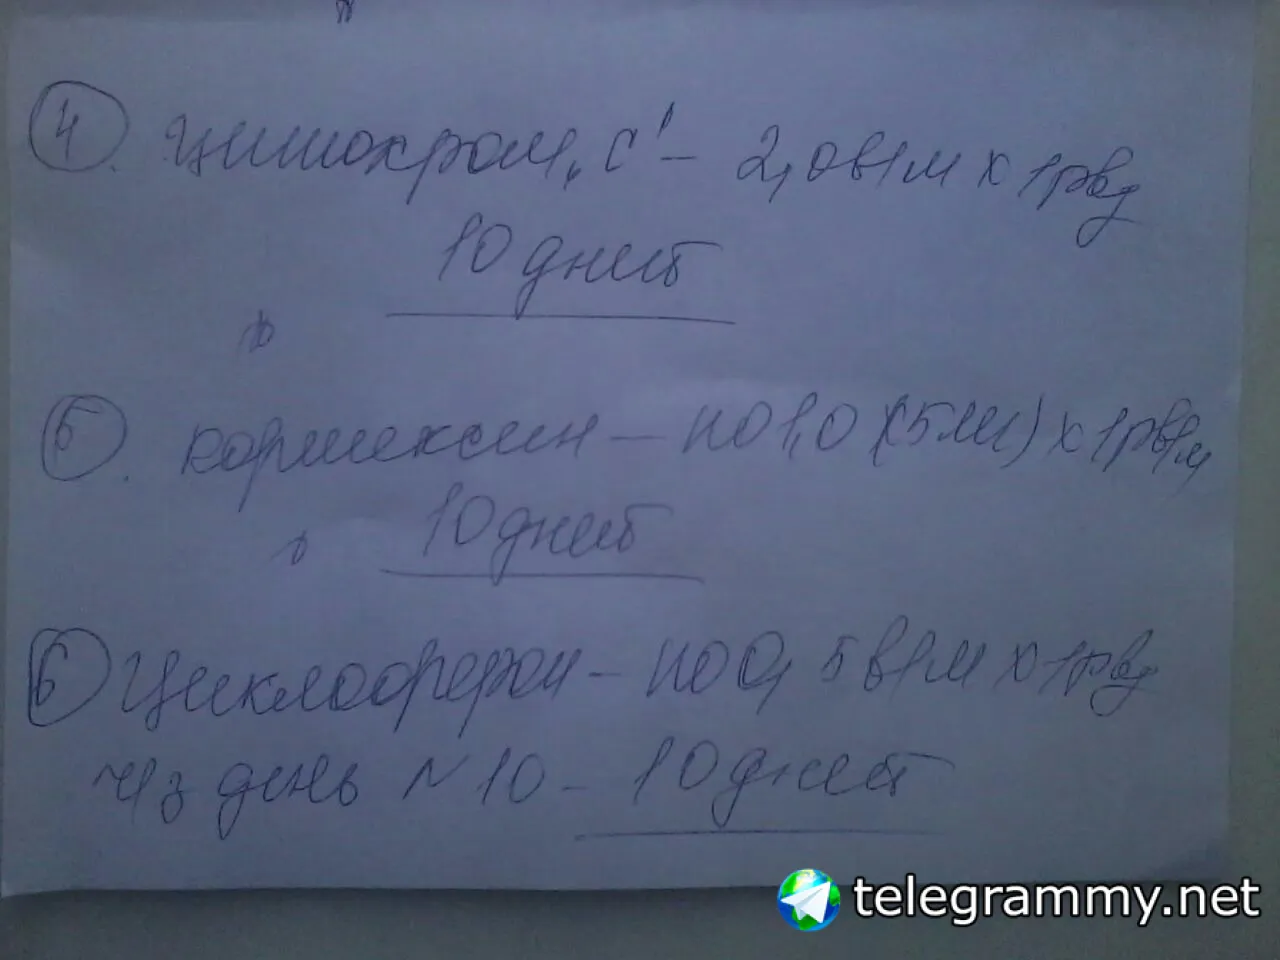 4. Цитохром „С" – 2,0 в/м х 1 р в д
10 дней
5. кортексин – по 1,0 (5 мг) х 1 р в/м
10 дней
6 Циклоферон – по 0,5 в/м х 1 р в д
ч/з день N 10 – 10 дней
telegrammy.net